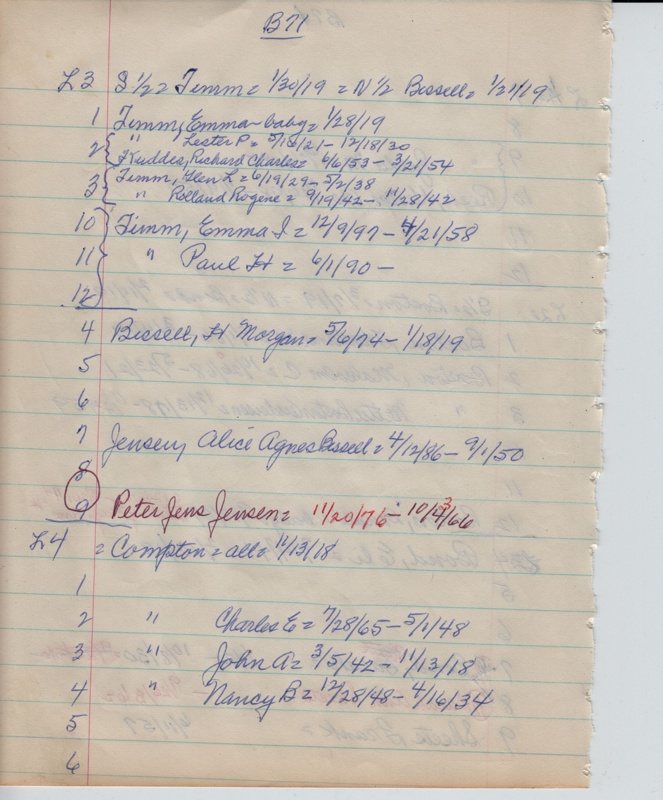 B71
L3 S 1/2 = Timm = 1/30/19 = N 1/2 Bissell = 1/21/19
1 Timm, Emma - baby = 1/28/19
2 { " Lester P = 5/18/21 - 12/18/30
Kuddes, Richard Charles = 6/6/53 - 3/21/54
3 { Timm, Glen L = 6/19/29 - 5/2/38
" Rolland Rogene = 9/19/42 - 11/28/42
10 { Timm, Emma I = 12/9/97 - 4/21/58
11 " Paul H = 6/1/90 -
12
4 Bissell, H Morgan = 5/6/74 - 1/18/19
5
6
7 Jensen, Alice Agnes Bissell = 4/12/86 - 9/1/50
8
9 Peter Jens Jensen = 11/20/76 - 10/3/66
L4 = Compton = all = 11/13/18
1
2 " Charles E = 7/28/65 - 5/1/48
3 " John A = 3/5/42 - 11/13/18
4 " Nancy B = 12/28/48 - 4/16/34
5
6